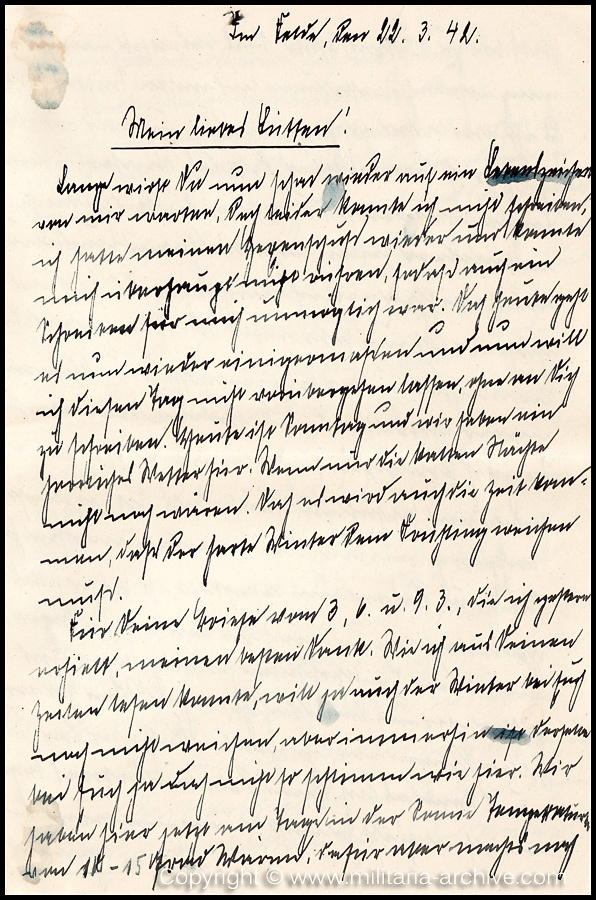 Im Felde, den 22. 3. 42.
Mein liebes Lütten!
Lange wirst Du nun schon wieder auf ein Lebenszeichen
von mir warten, doch leider konnte ich nicht schreiben,
ich hatte meinen Hexenschuß wieder und konnte
mich überhaupt nicht rühren, sodaß auch ein
Schreiben für mich unmöglich war. Doch heute geht
es nun wieder einigermaßen und nun will
ich diesen Tag nicht vorübergehen lassen, ohne an Dich
zu schreiben. Heute ist Sonntag und wir haben ein
herrliches Wetter hier. Wenn nur die kalten Nächte
nicht noch wären. Doch es wird auch die Zeit kom-
men, daß der harte Winter dem Frühling weichen
muß.
Für Deine Briefe vom 3, 6. u. 9. 3., die ich gestern
erhielt, meinen besten Dank. Wie ich aus Deinen
Zeilen lesen konnte, will ja auch der Winter bei Euch
noch nicht weichen, aber immerhin ist derselbe
bei Euch ja doch nicht so schlimm wie hier. Wir
haben hier jetzt am Tage in der Sonne Temperaturen
von 10-15 Grad Wärme, dafür aber nachts noch
Copyright © www.militaria-archive.com